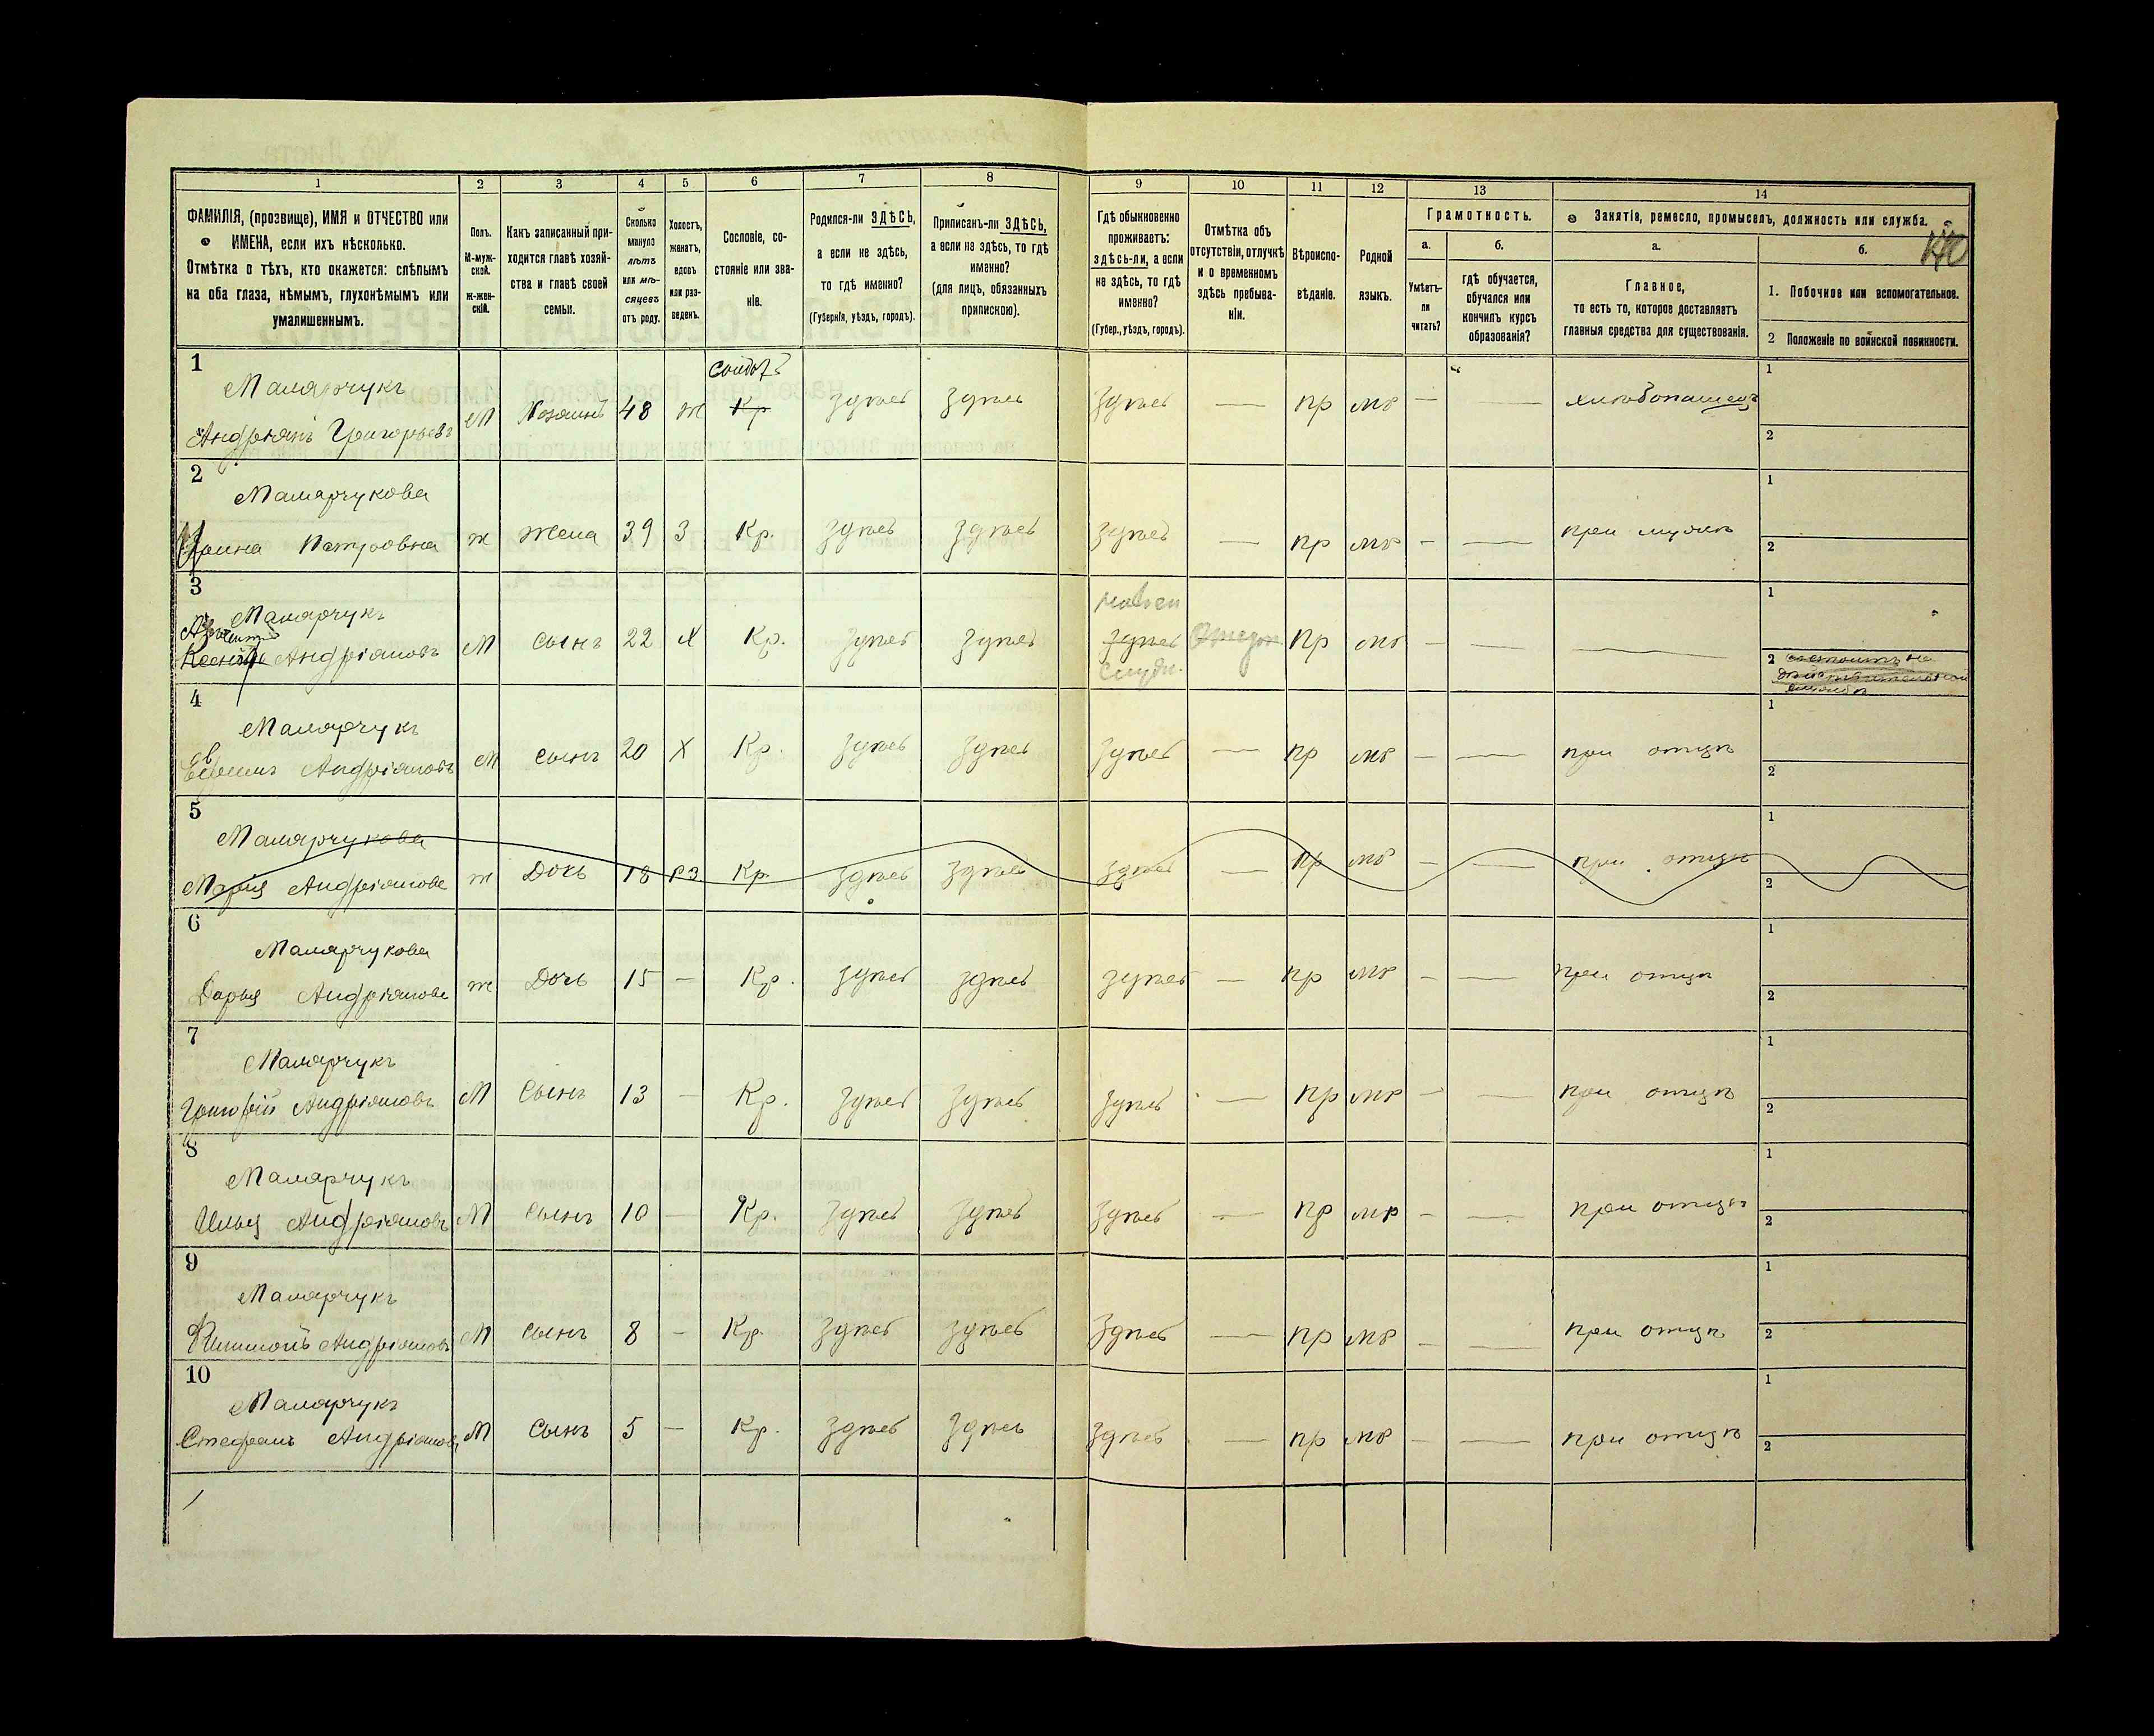 1 2 3 4 5 6 7 8 9 10 11 12 13 14
ФАМИЛІЯ, (прозвище), ИМЯ и ОТЧЕСТВО или
ИМЕНА, если ихъ нѣсколько.
Отмѣтка о тѣхъ, кто окажется: слѣпымъ
на оба глаза, нѣмымъ, глухонѣмымъ или
умалишеннымъ.
Полъ.
М-муж-
ской.
ж-жен-
скій.
Какъ записанный при-
ходится главѣ хозяй-
ства и главѣ своей
семьи.
Сколько
минуло
лѣтъ
или мѣ-
сяцевъ
отъ роду.
Холостъ,
женатъ,
вдовъ
или раз-
веденъ.
Сословіе, со-
стояніе или зва-
ніе.
Родился-ли ЗДѢСЬ,
а если не здѣсь,
то гдѣ именно?
(Губернія, уѣздъ, городъ).
Приписанъ-ли ЗДѢСЬ,
а если не здѣсь, то гдѣ
именно?
(для лицъ, обязанныхъ
припискою).
Гдѣ обыкновенно
проживаетъ:
здѣсь-ли, а если
не здѣсь, то гдѣ
именно?
(Губер., уѣздъ, городъ).
Отмѣтка объ
отсутствіи, отлучкѣ
и о временномъ
здѣсь пребыва-
ніи.
Вѣроиспо-
вѣданіе.
Родной
языкъ.
Грамотность.
а.
Умѣетъ-
ли
читать?
б.
гдѣ обучается,
обучался или
кончилъ курсъ
образованія?
Занятіе, ремесло, промыселъ, должность или служба.
а.
Главное,
то есть то, которое доставляетъ
главныя средства для существованія.
б.
1. Побочное или вспомогательное.
2 Положеніе по воинской повинности.
1
Малярчукъ
Андріянъ Григорьевъ М Хозяинъ 48 ж Кр Здѣсь Здѣсь Здѣсь — пр мр — — хлебопашецъ
1
2
2
Малярчукова
Ирина Петровна ж Жена 39 З Кр. Здѣсь Здѣсь Здѣсь — пр мр — — при мужѣ
1
2
3
Малярчукъ
Андріяновъ М Сынъ 22 Х Кр. Здѣсь Здѣсь Здѣсь Пр мр — —
1
2 состоитъ на
дѣйствительной
службѣ
4
Малярчукъ
Андріяновъ М Сынъ 20 Х Кр. Здѣсь Здѣсь Здѣсь — пр мр — — при отцѣ
1
2
5
Малярчукова
Марія Андріянова ж Дочь 18 рз Кр. Здѣсь Здѣсь Здѣсь — пр мр — — при отцѣ
1
2
6
Малярчукова
Дарья Андріянова ж Дочь 15 — Кр. Здѣсь Здѣсь Здѣсь — пр мр — — при отцѣ
1
2
7
Малярчукъ
Григорій Андріяновъ М Сынъ 13 — Кр. Здѣсь Здѣсь Здѣсь — пр мр — — при отцѣ
1
2
8
Малярчукъ
Илья Андріяновъ М Сынъ 10 — Кр. Здѣсь Здѣсь Здѣсь — пр мр — — при отцѣ
1
2
9
Малярчукъ
Филимонъ Андріяновъ М Сынъ 8 — Кр. Здѣсь Здѣсь Здѣсь — пр мр — — при отцѣ
1
2
10
Малярчукъ
Стефанъ Андріяновъ М Сынъ 5 — Кр. Здѣсь Здѣсь Здѣсь — пр мр — — при отцѣ
1
2